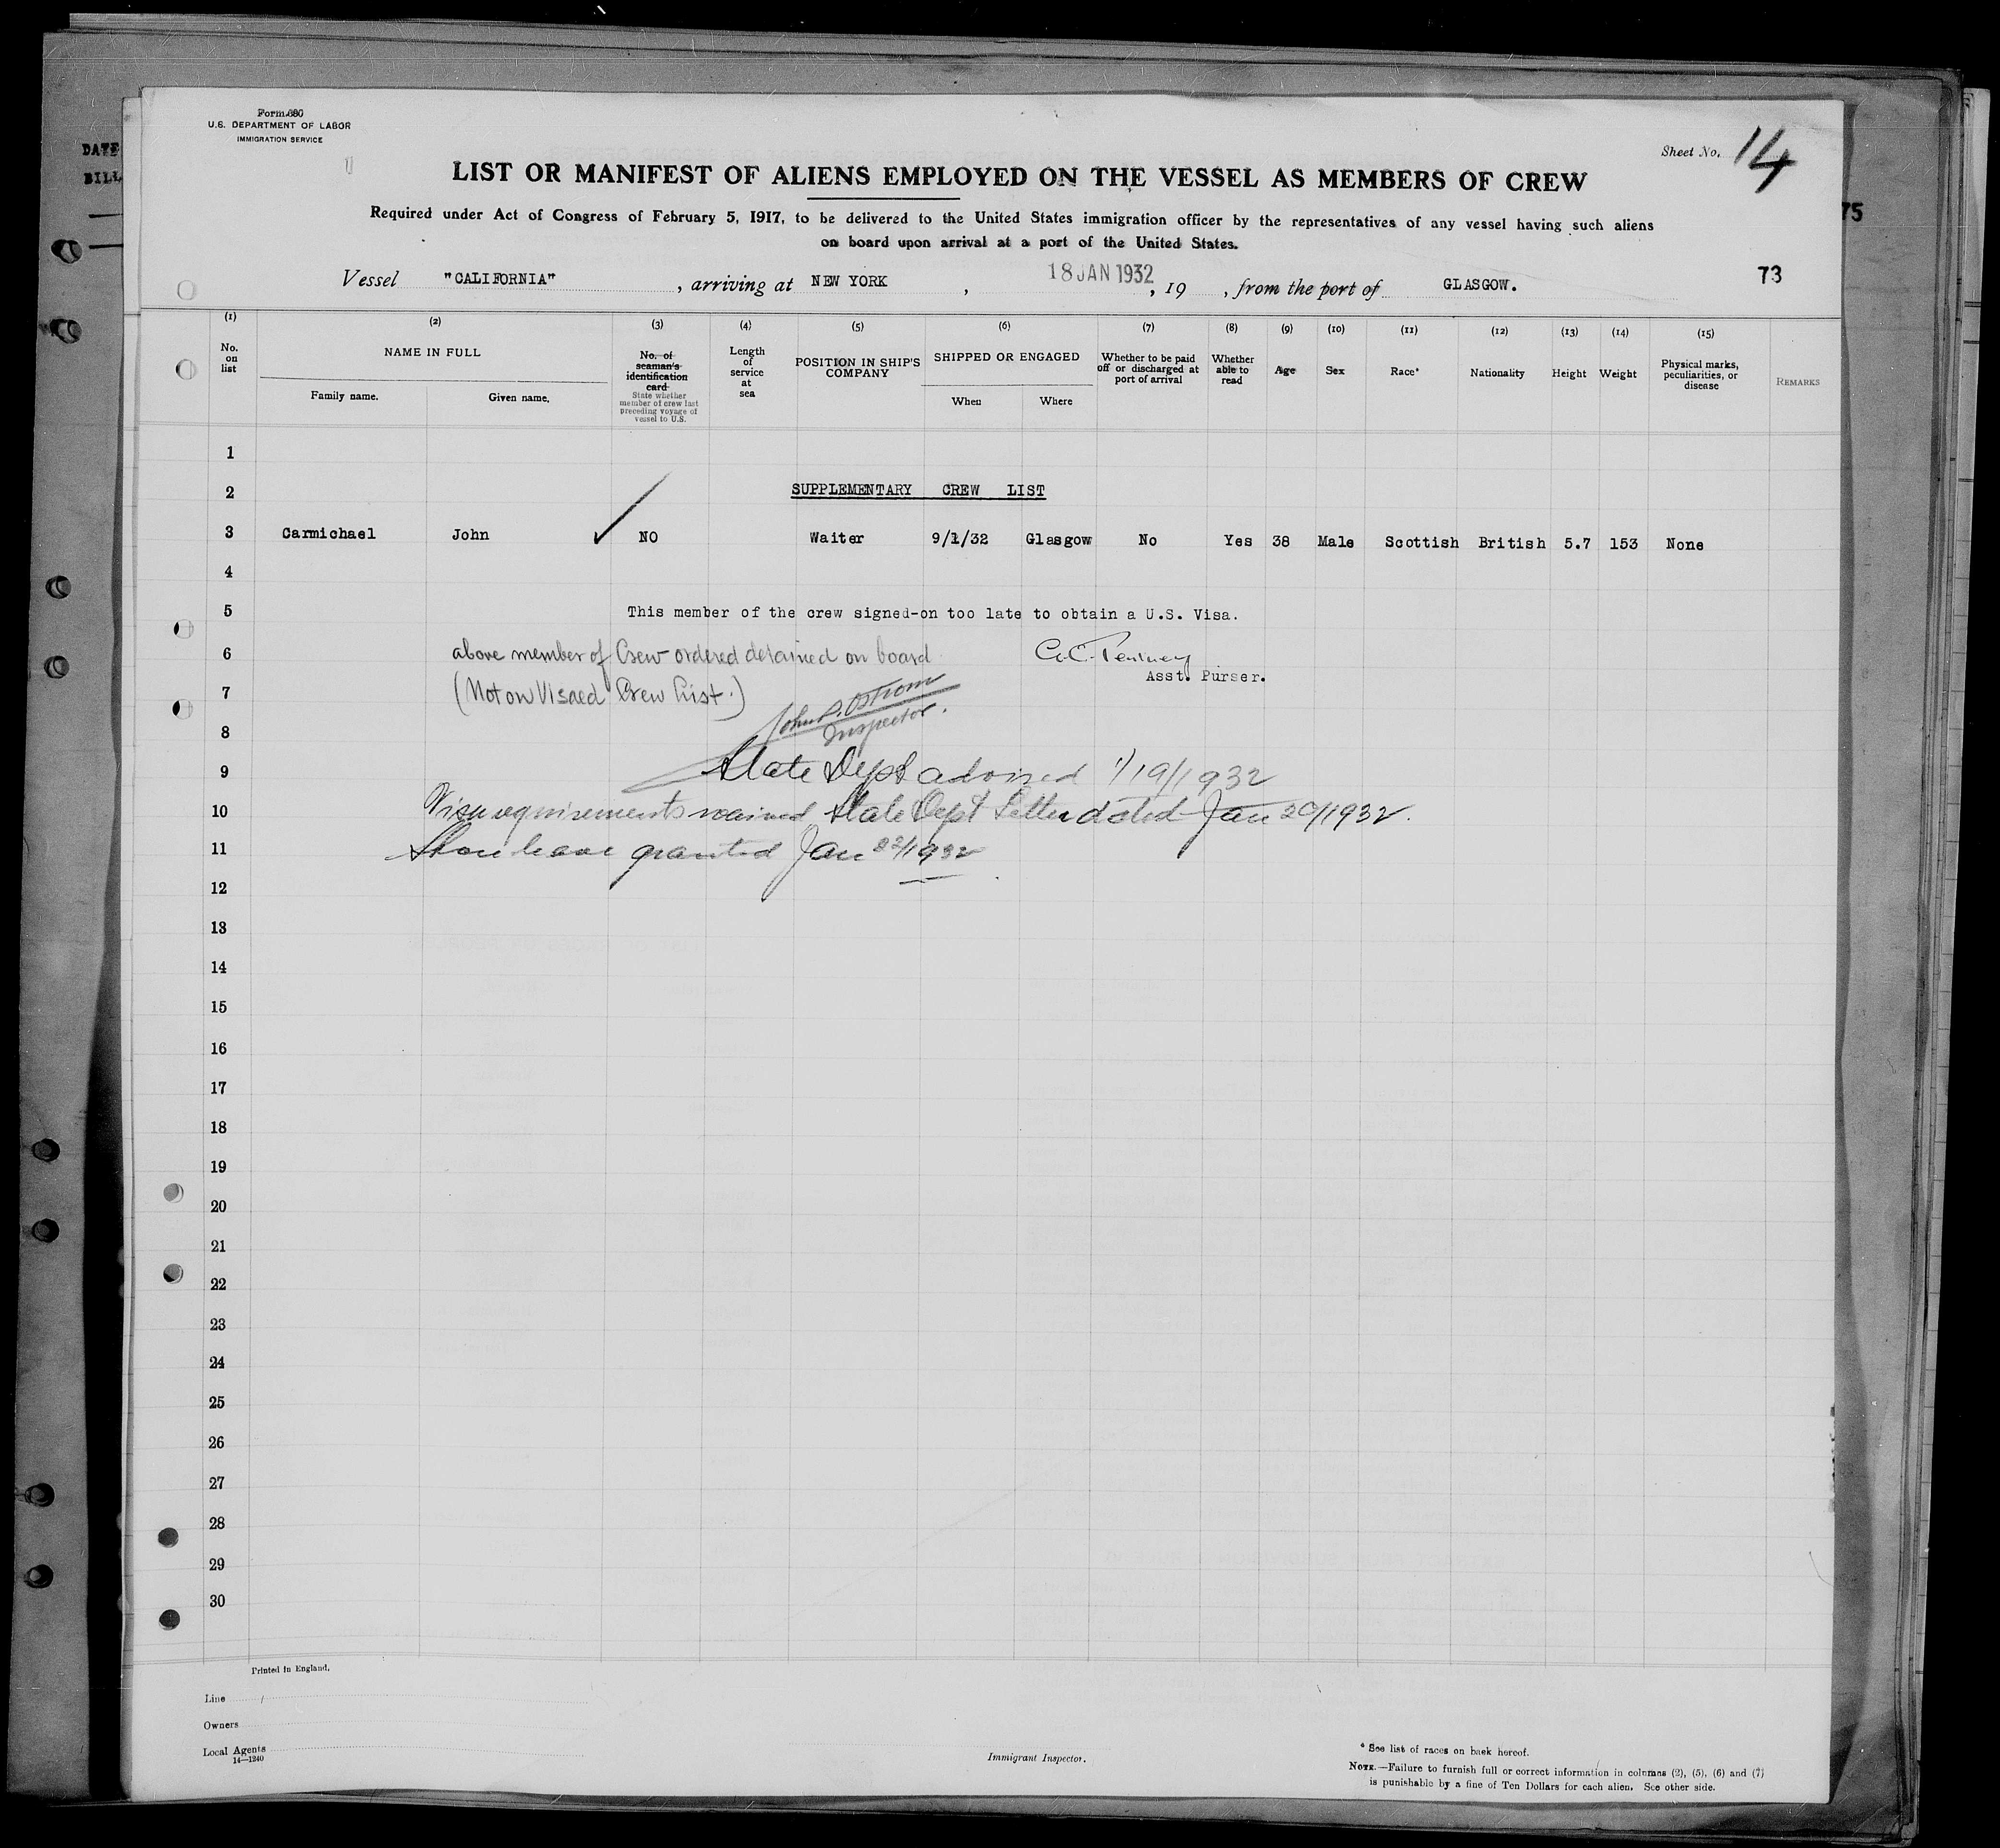 DATE
BILL
75
Form 680
U.S. DEPARTMENT OF LABOR
IMMIGRATION SERVICE
Sheet No. 14
LIST OR MANIFEST OF ALIENS EMPLOYED ON THE VESSEL AS MEMBERS OF CREW
Required under Act of Congress of February 5, 1917, to be delivered to the United States immigration officer by the representatives of any vessel having such aliens
on board upon arrival at a port of the United States.
Vessel "CALIFORNIA", arriving at NEW YORK, 18 JAN 1932, 19 , from the port of GLASGOW. 73
(1) (2) (3) (4) (5) (6) (7) (8) (9) (10) (11) (12) (13) (14) (15)
No. on list
NAME IN FULL
Family name. Given name.
No. of seaman's identification card
State whether member of crew last preceding voyage of vessel to U.S.
Length of service at sea
POSITION IN SHIP'S COMPANY
SHIPPED OR ENGAGED
When Where
Whether to be paid off or discharged at port of arrival
Whether able to read
Age
Sex
Race*
Nationality
Height
Weight
Physical marks, peculiarities, or disease
REMARKS
1
2 SUPPLEMENTARY CREW LIST
3 Carmichael John NO Waiter 9/1/32 Glasgow No Yes 38 Male Scottish British 5.7 153 None
4
5 This member of the crew signed-on too late to obtain a U.S. Visa.
6 above member of Crew ordered detained on board
Asst. Purser.
7 (Not on Visaed Crew List.)
8 John Ostrom
Inspector.
9 State Dept advised 1/19/1932
10 Visa requirements waived State Dept Letter dated Jan 20/1932.
11 Shore leave granted Jan 22/1932
12
13
14
15
16
17
18
19
20
21
22
23
24
25
26
27
28
29
30
Printed in England.
Line
Owners
Local Agents
14—1240
Immigrant Inspector.
* See list of races on back hereof.
NOTE.—Failure to furnish full or correct information in columns (2), (5), (6) and (7)
is punishable by a fine of Ten Dollars for each alien. See other side.